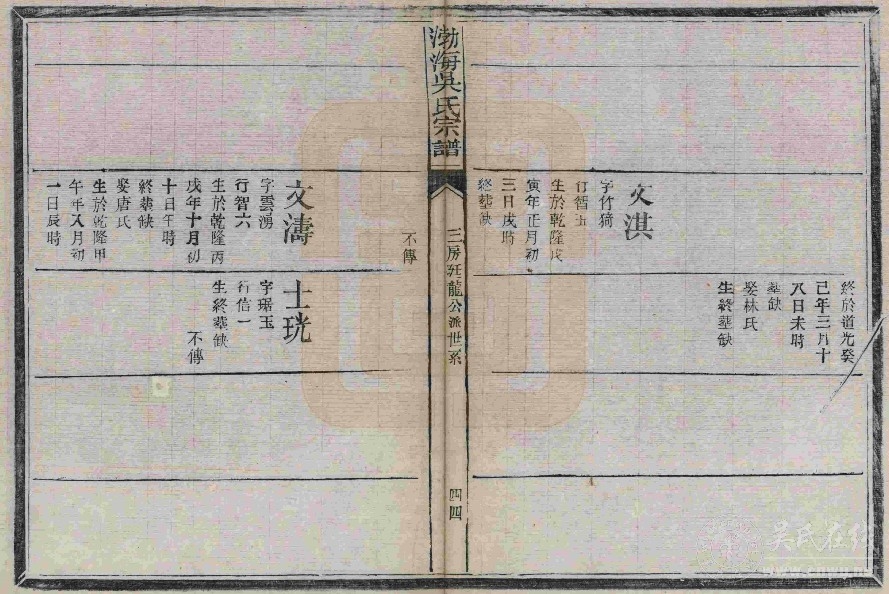 終於道光癸
巳年三月十
八日未時
葬缺
娶林氏
生終葬缺
文淇
字竹猗
行智五
生於乾隆戊
寅年正月初
三日戌時
終葬缺
不傳
渤海吳氏宗譜
三房廷龍公派世系
四四
文濤
字雲湧
行智六
生於乾隆丙
戌年十月初
十日午時
終葬缺
娶唐氏
生於乾隆甲
午年八月初
一日辰時
士珖
字琚玉
行信一
生終葬缺
不傳
吴氏在线